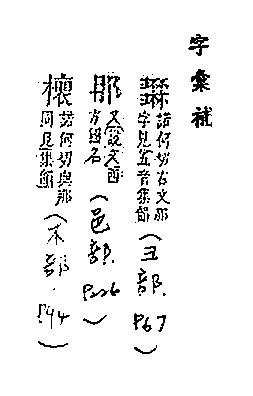 字彙補
諾何切古文那
字見五音集韻
(玉部. P67)
那 又說文西
方國名
(邑部. P226)
欀 諾何切與那
同見集韻
(木部. P94)